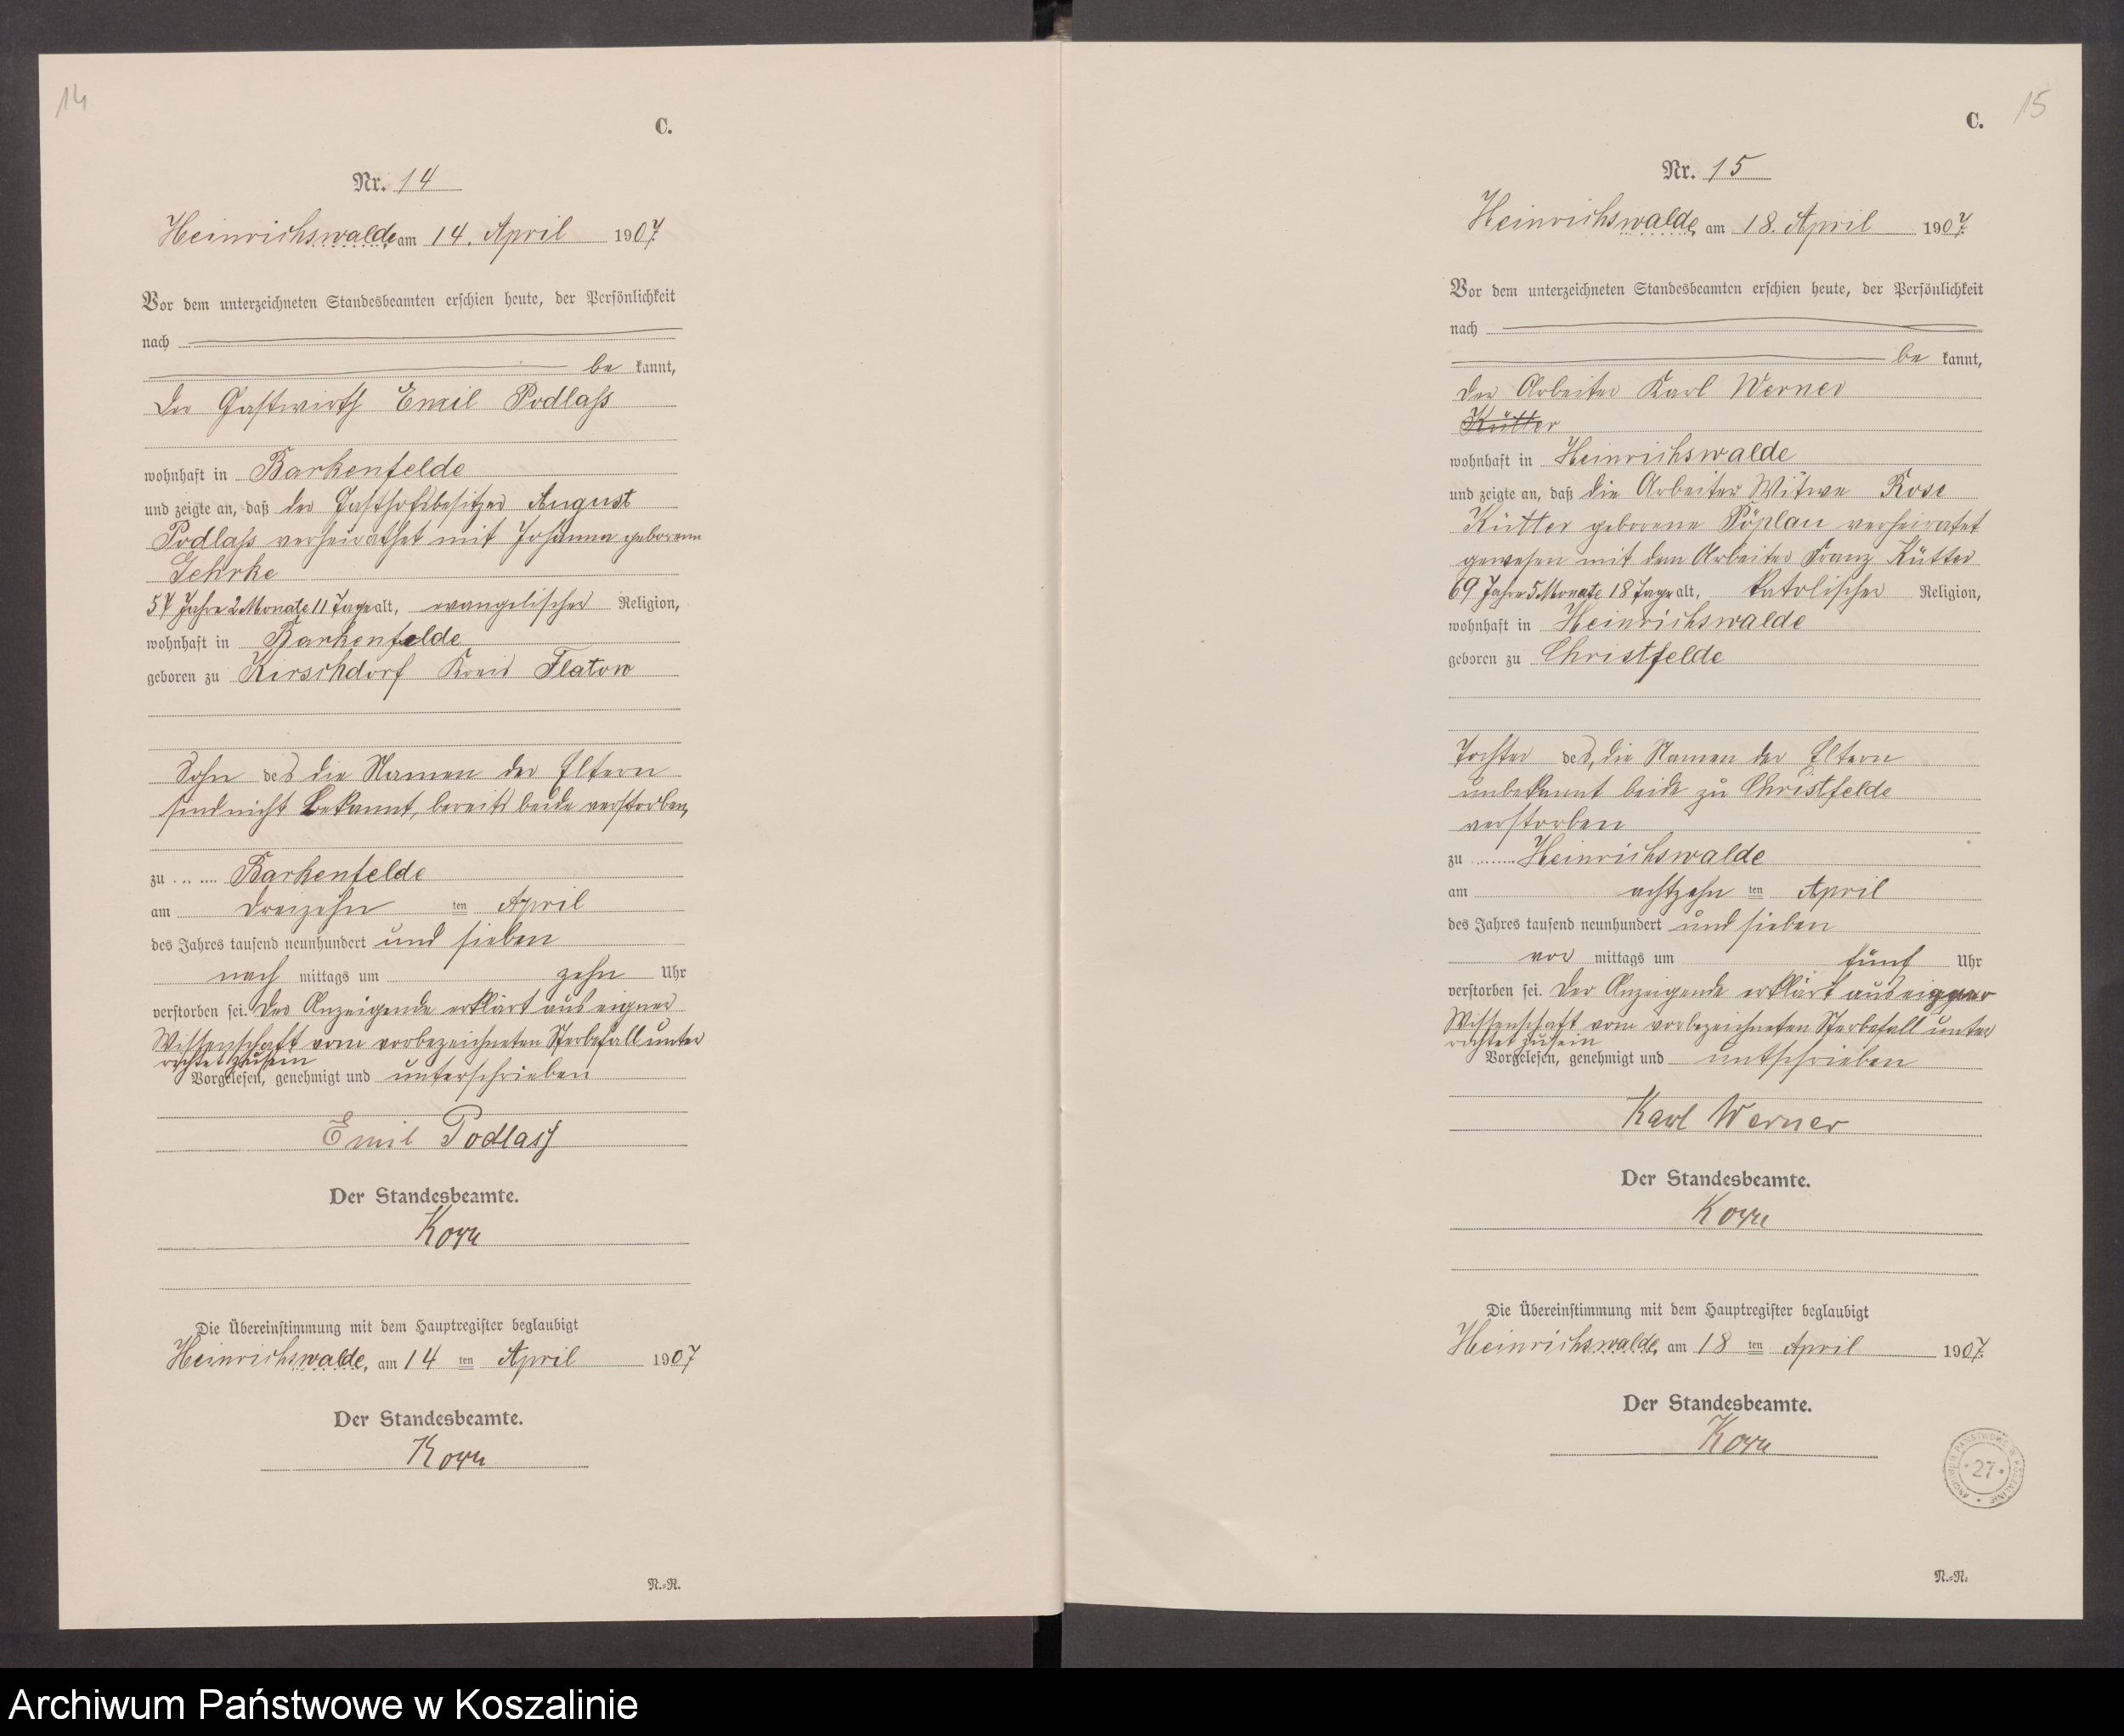 14
C.
Nr. 14
Heinrichswalde am 14. April 1907.
Vor dem unterzeichneten Standesbeamten erschien heute, der Persönlichkeit
nach
be kannt,
der Gastwirth Emil Podlaß
wohnhaft in Barkenfelde
und zeigte an, daß der Gasthofsbesitzer August
Podlaß verheirathet mit Johanna geborene
Gehrke
57 Jahre 2 Monate 11 Tage alt, evangelischer Religion,
wohnhaft in Barkenfelde
geboren zu Kirschdorf Kreis Flatow
Sohn des die Namen der Eltern
sind nicht bekannt, bereits beide verstorben,
zu Barkenfelde
am dreizehn ten April
des Jahres tausend neunhundert und sieben
nach mittags um zehn Uhr
verstorben sei. Der Anzeigende erklärt aus eigner
Wissenschaft vom vorbezeichneten Sterbefall unter
richtet zu sein
Vorgelesen, genehmigt und unterschrieben
Emil Podlaß
Der Standesbeamte.
Korn
Die Übereinstimmung mit dem Hauptregister beglaubigt
Heinrichswalde, am 14 ten April 1907
Der Standesbeamte.
Korn
N.=R.
15
C.
Nr. 15
Heinrichswalde, am 18. April 1907.
Vor dem unterzeichneten Standesbeamten erschien heute, der Persönlichkeit
nach
be kannt,
der Arbeiter Karl Werner
Kütter
wohnhaft in Heinrichswalde
und zeigte an, daß die Arbeiter Witwe Rose
Kütter geborene Pöplau verheiratet
gewesen mit dem Arbeiter Franz Kütter
69 Jahre 5 Monate 18 Tage alt, katolischer Religion,
wohnhaft in Heinrichswalde
geboren zu Christfelde
Tochter des, die Namen der Eltern
unbekannt beide zu Christfelde
verstorben
zu Heinrichswalde
am achtzehn ten April
des Jahres tausend neunhundert und sieben
vor mittags um fünf Uhr
verstorben sei. Der Anzeigende erklärt aus eigner
Wissenschaft vom vorbezeichneten Sterbefall unter
richtet zu sein
Vorgelesen, genehmigt und untschrieben
Karl Werner
Der Standesbeamte.
Korn
Die Übereinstimmung mit dem Hauptregister beglaubigt
Heinrichswalde, am 18 ten April 1907.
Der Standesbeamte.
Korn
ARCHIWUM PAŃSTWOWE W KOSZALINIE
27
N.=R.
Archiwum Państwowe w Koszalinie